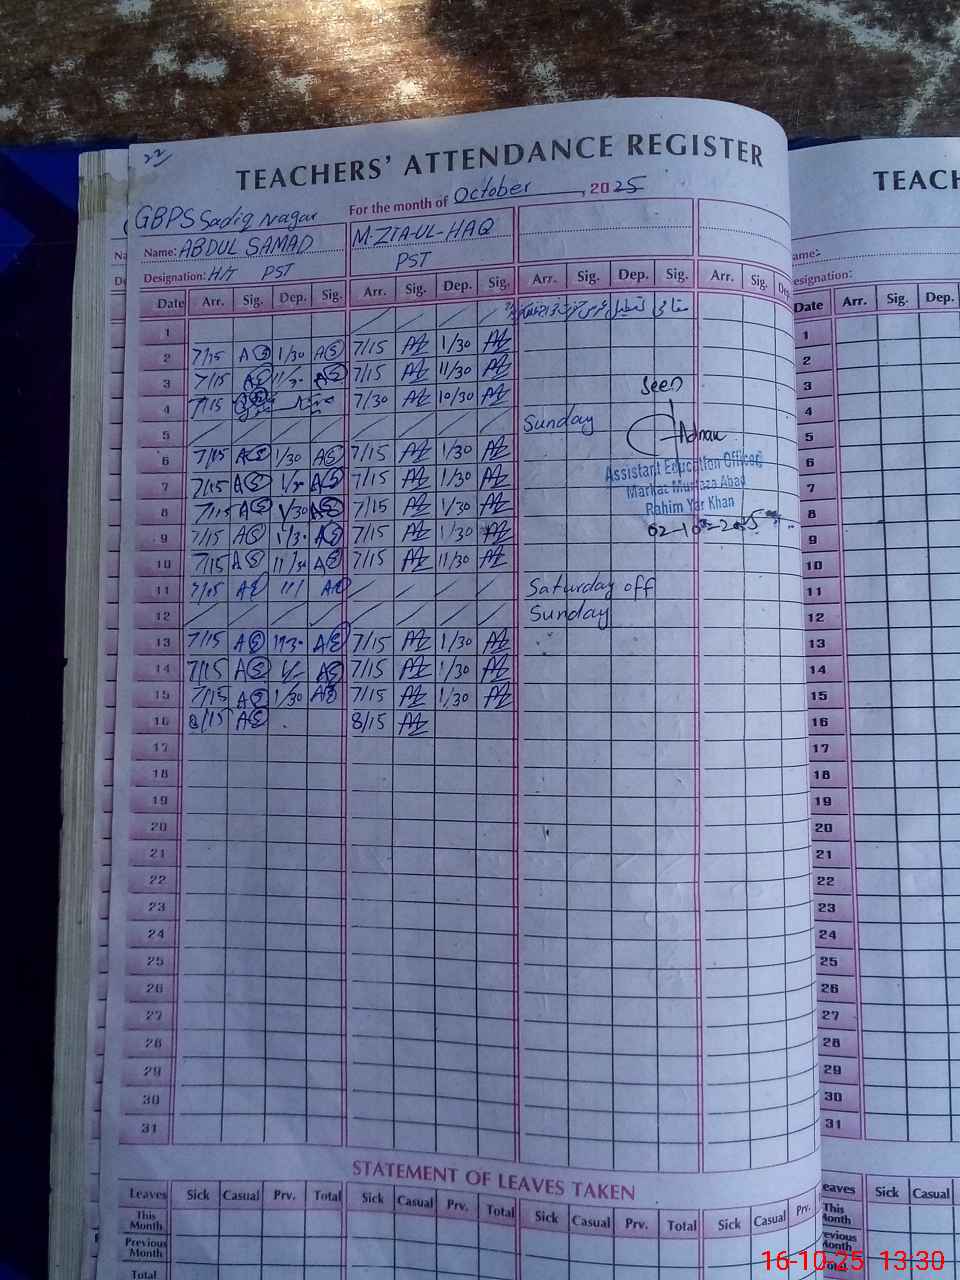 22
TEACHERS' ATTENDANCE REGISTER
For the month of October, 2025
GBPS Sadiq Nagar
Name: ABDUL SAMAD M-ZIA-UL-HAQ
Designation: H/T PST PST
Date Arr. Sig. Dep. Sig. Arr. Sig. Dep. Sig. Arr. Sig. Dep. Sig. Arr. Sig. Dep.
1 مقامی تعطیل عرس
2 7/15 AS 1/30 AS 7/15 AZ 1/30 AZ
3 7/15 AS 11/30 AS 7/15 AZ 11/30 AZ
seen
4 7/15 7/30 AZ 10/30 AZ
5 Sunday
Adnan
6 7/15 AS 1/30 AS 7/15 AZ 1/30 AZ
Assistant Education Officer
7 7/15 AS 1/30 AS 7/15 AZ 1/30 AZ
Markaz Murtaza Abad
8 7/15 AS 1/30 AS 7/15 AZ 1/30 AZ
Rahim Yar Khan
9 7/15 AS 1/30 AS 7/15 AZ 1/30 AZ
02-10-2025
10 7/15 AS 11/30 AS 7/15 AZ 11/30 AZ
11 7/15 AS 11/ AS Saturday off
12 Sunday
13 7/15 AS AS 7/15 AZ 1/30 AZ
14 7/15 AS 1/ AS 7/15 AZ 1/30 AZ
15 7/15 AS 1/30 AS 7/15 AZ 1/30 AZ
16 8/15 AS 8/15 AZ
17
18
19
20
21
22
23
24
25
26
27
28
29
30
31
STATEMENT OF LEAVES TAKEN
Leaves Sick Casual Prv. Total Sick Casual Prv. Total Sick Casual Prv. Total Sick Casual Prv.
This Month
Previous Month
Total
TEACH
ame:
esignation:
Date Arr. Sig. Dep.
1
2
3
4
5
6
7
8
9
10
11
12
13
14
15
16
17
18
19
20
21
22
23
24
25
26
27
28
29
30
31
eaves Sick Casual
This Month
evious Month
Total
16-10-25 13:30